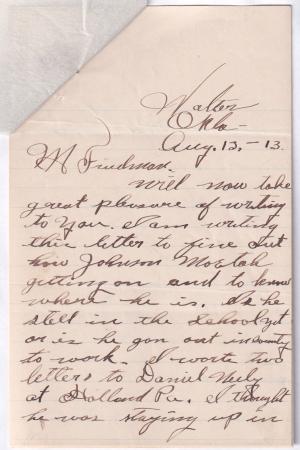 Walter
Okla-
Aug. 13, -13.
M Friedman.
Will now take
great pleasure of writing
to you. I am writing
this letter to fine out
how Johnson
getting on and to know
where he is. Is he
still in the school yet
or is he gon out in county
to work. I worte two
letters to Daniel
at Holland Pa. I thought
he was staying up in